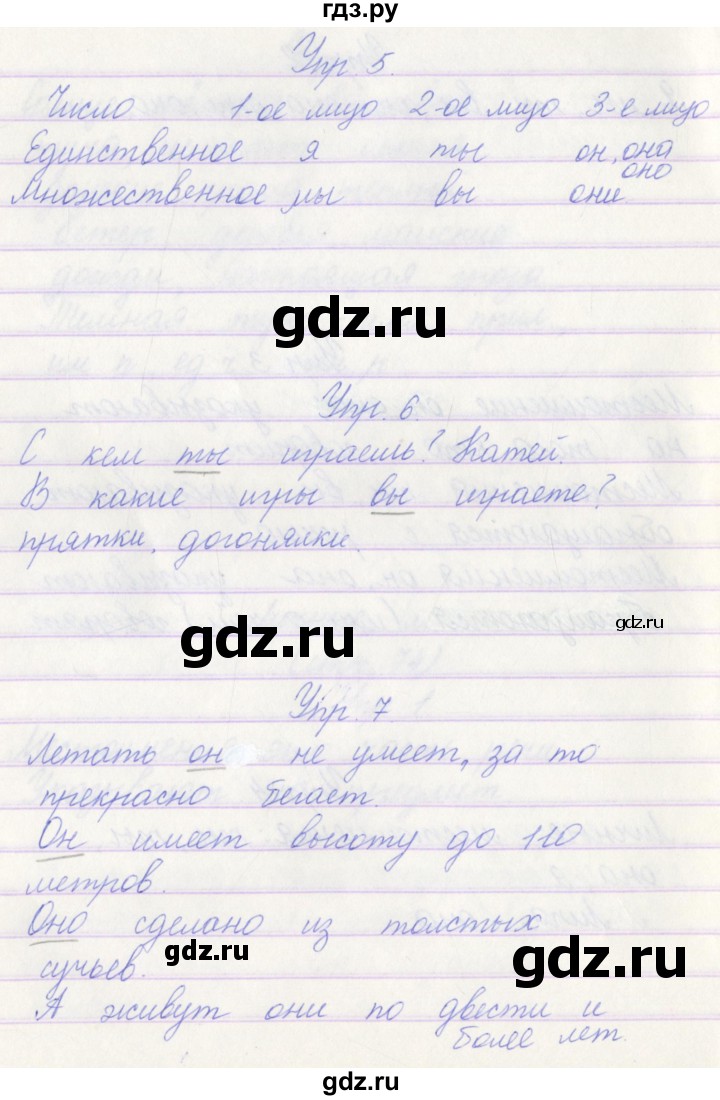 гдз.ру
Упр. 5.
Число 1-ое лицо 2-ое лицо 3-е лицо
Единственное я ты он, она
оно
Множественное мы вы они
gdz.ru
Упр. 6.
С кем ты играешь? Катей.
В какие игры вы играете?
прятки, догонялки.
gdz.ru
gdz.ru
Упр. 7
Летать он не умеет, за то
прекрасно бегает.
Он имеет высоту до 110
метров.
Оно сделано из толстых
gdz.ru
gdz.ru
сучьев.
А живут они по двести и
более лет.
gdz.ru